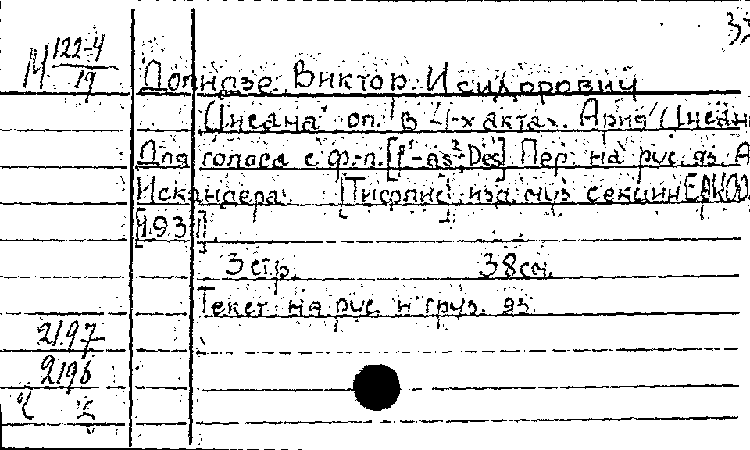 M 122-4
19
Долидзе Виктор Исидорович
"Цисана" оп. в 4-х актах. Ария Цисаны
Для голоса с ф.-п. [f¹-as²; Des] Пер. на рус. яз. А
Искандера. [Тифлис] изд. муз. секции
[193]
3 стр. 38 см.
Текст на рус. и груз. яз.
2197
2196